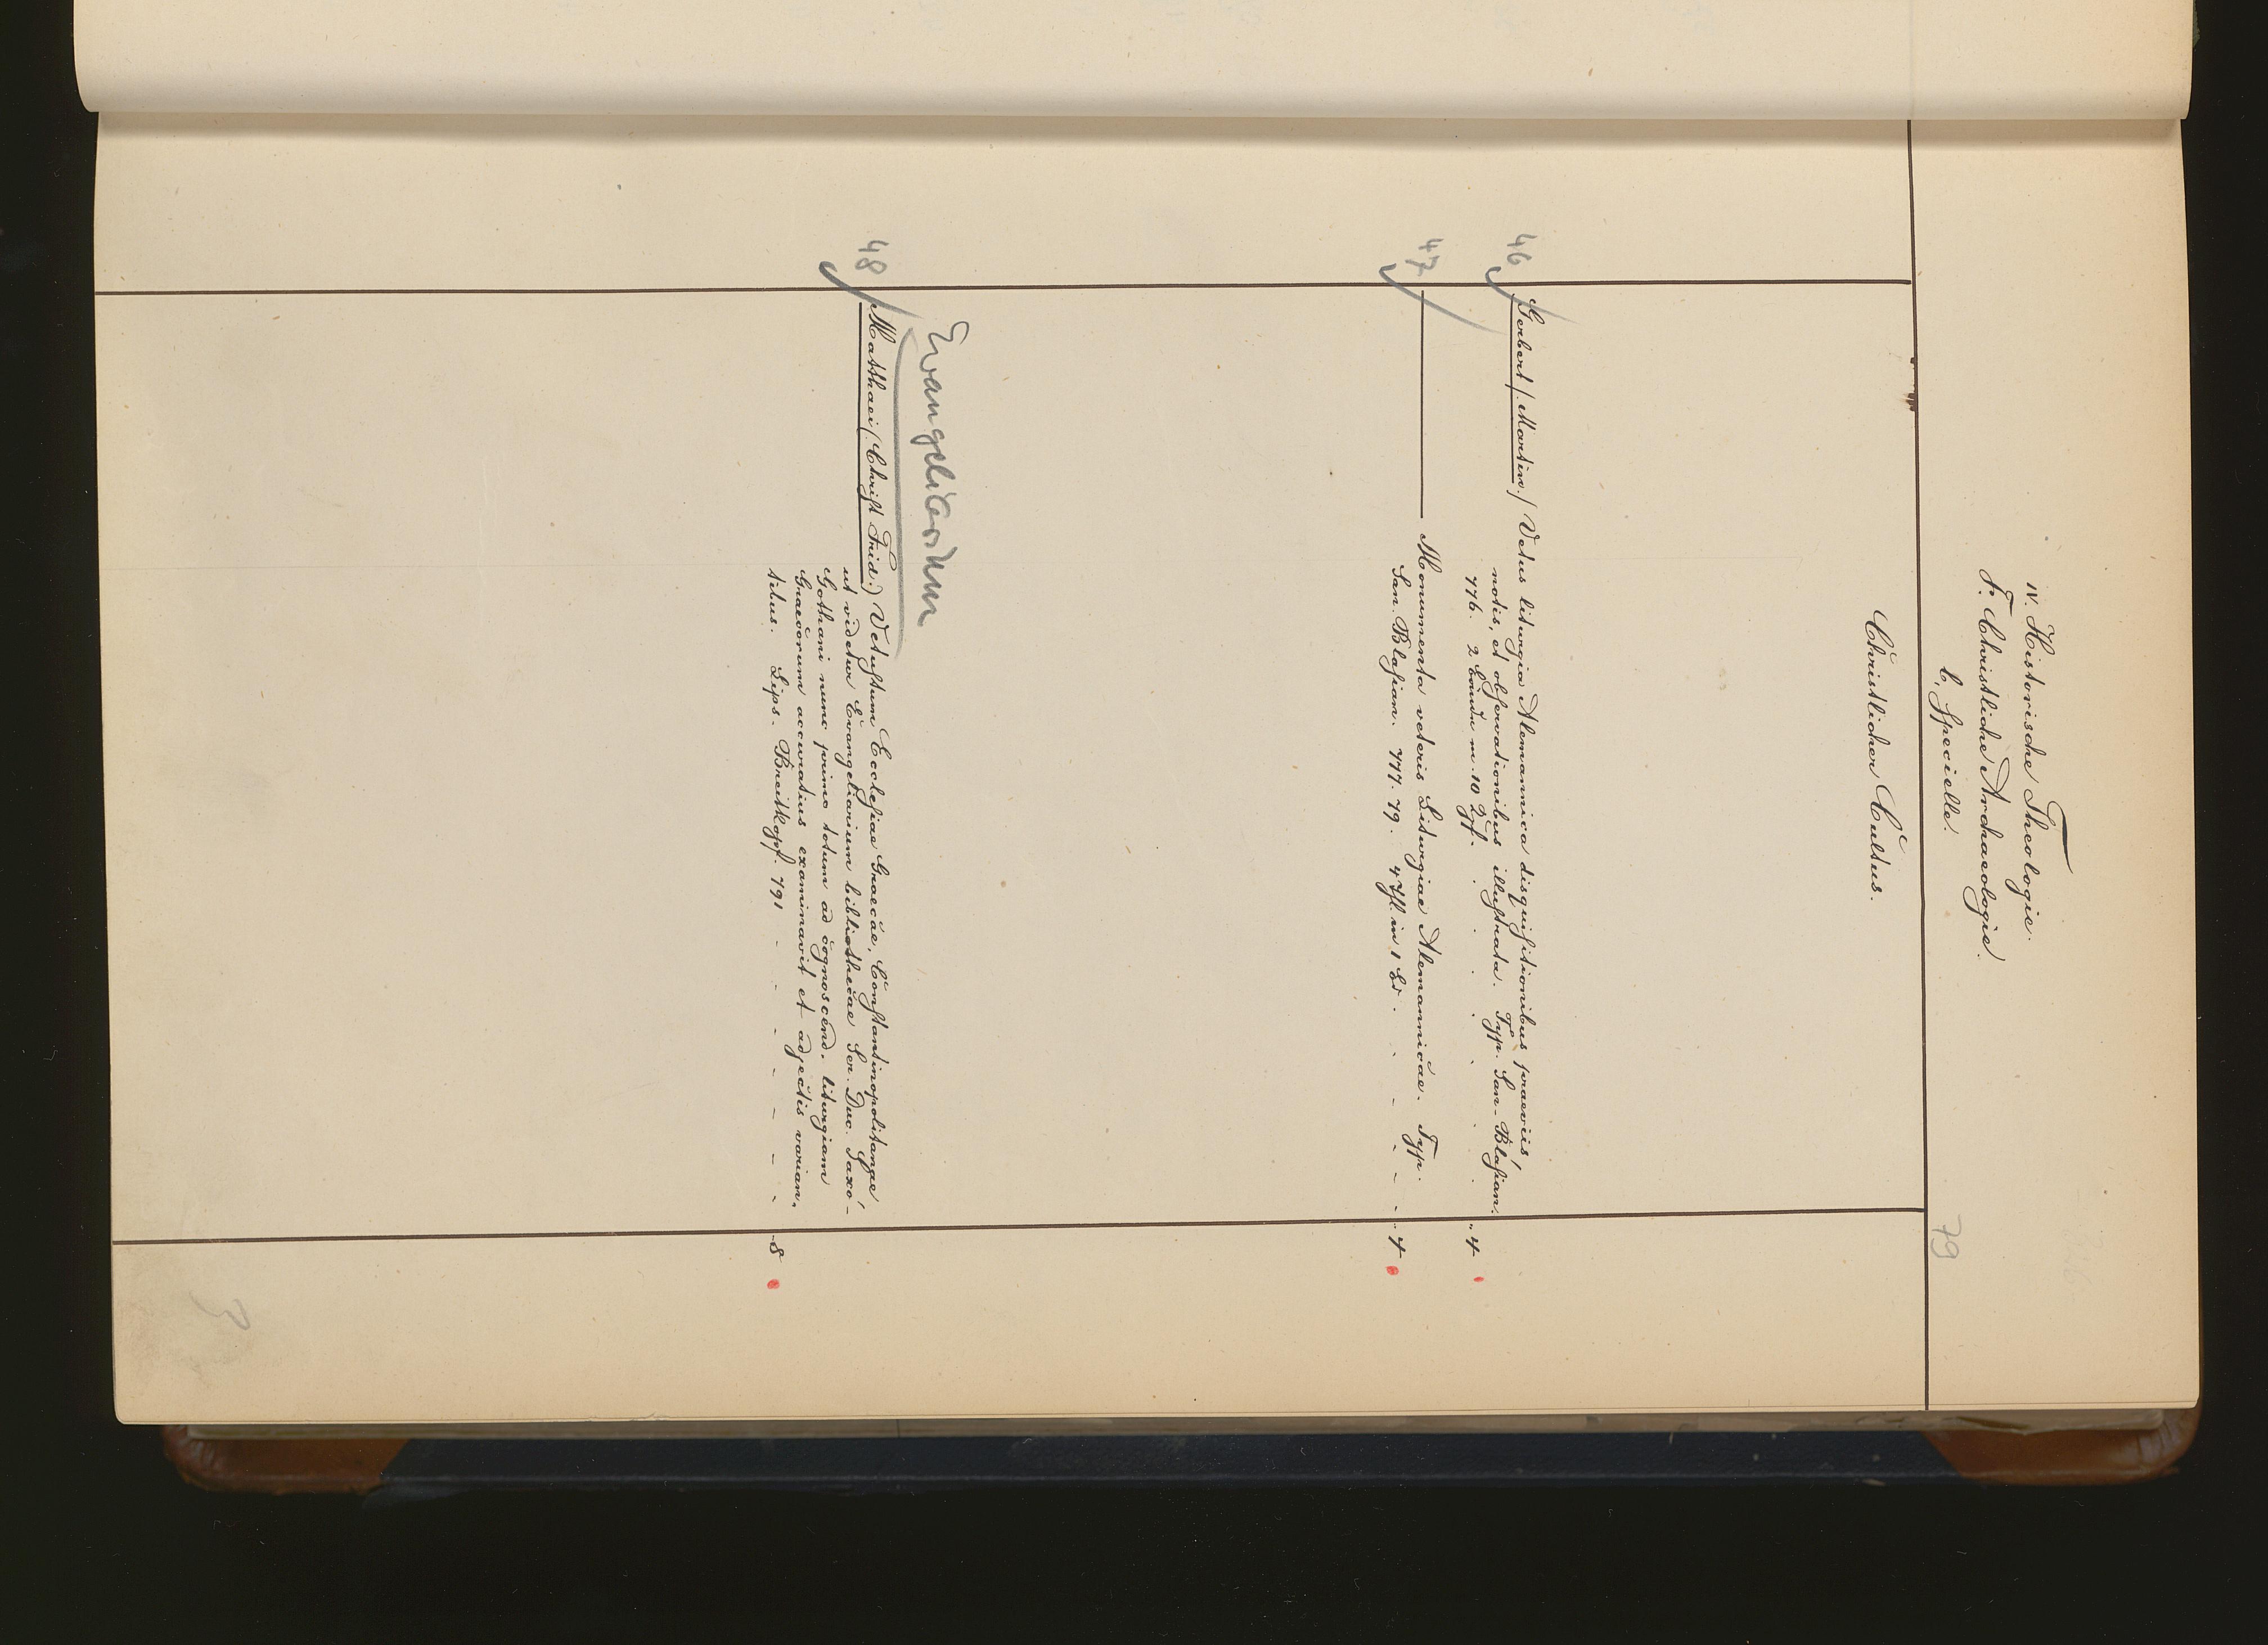 IV. Historische Theologie.
F. Christliche Archaeologie.
b, Specielle.
79
Christlicher Cultus.
46 Gerbert (Martin.) Vetus liturgia Alemannica disquisitionibus praeviis,
notis, et observationibus illustrata. Typ. San-Blasian.
776. 2 m. 10 . . . . . . . 4
47 ——— Monumenta veteris Liturgiae Alemannicae. Typ.
San. Blasian. 777. 79. in 1 Bd. . - - - - 4
Evangeliarium
48 Matthaei (Christ Frid.) Vetustum Ecclesiae Graecae, Constantinopolitanae
ut videtur Evangeliarium bibliothecae Ser. Duc. Saxo-
Gothani nunc primo totum ad cognoscend. liturgiam
Graecorum accuratius examinavit et adjectis varian,
tibus. Lips. Breitkopf. 791 - - - - - - - - 8
3